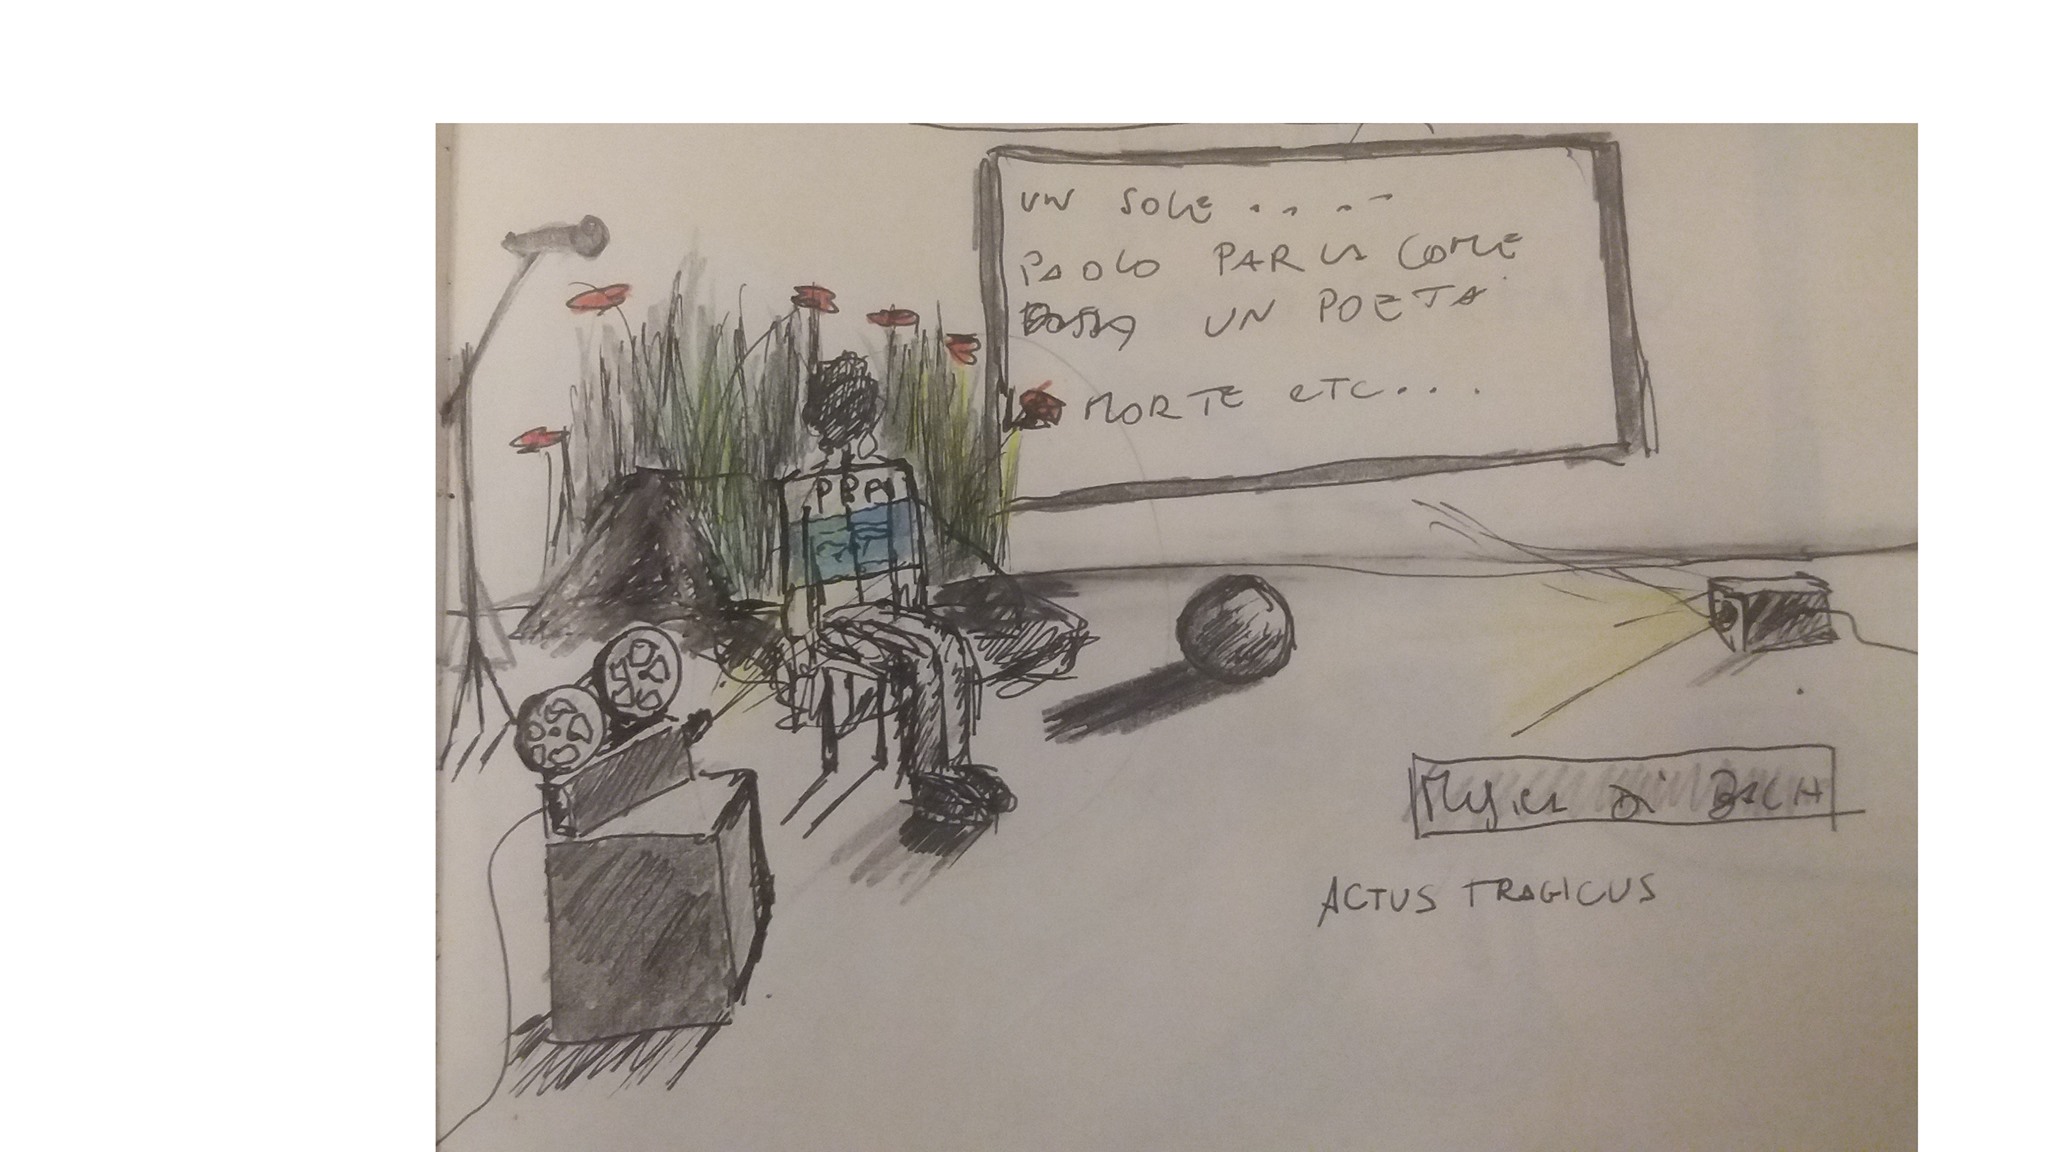 UN SOLE . . . .
PAOLO PARLA COME
UN POETA
MORTE ETC...
PPP
MUSICA DI BACH
ACTUS TRAGICUS